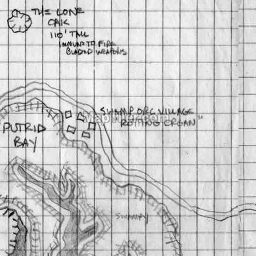 THE LONE
OAK
110' TALL
IMMUNE TO FIRE
BLADED WEAPONS
SWAMP ORC VILLAGE
"ROTTING ORGAN"
PUTRID
BAY
SWAMPY